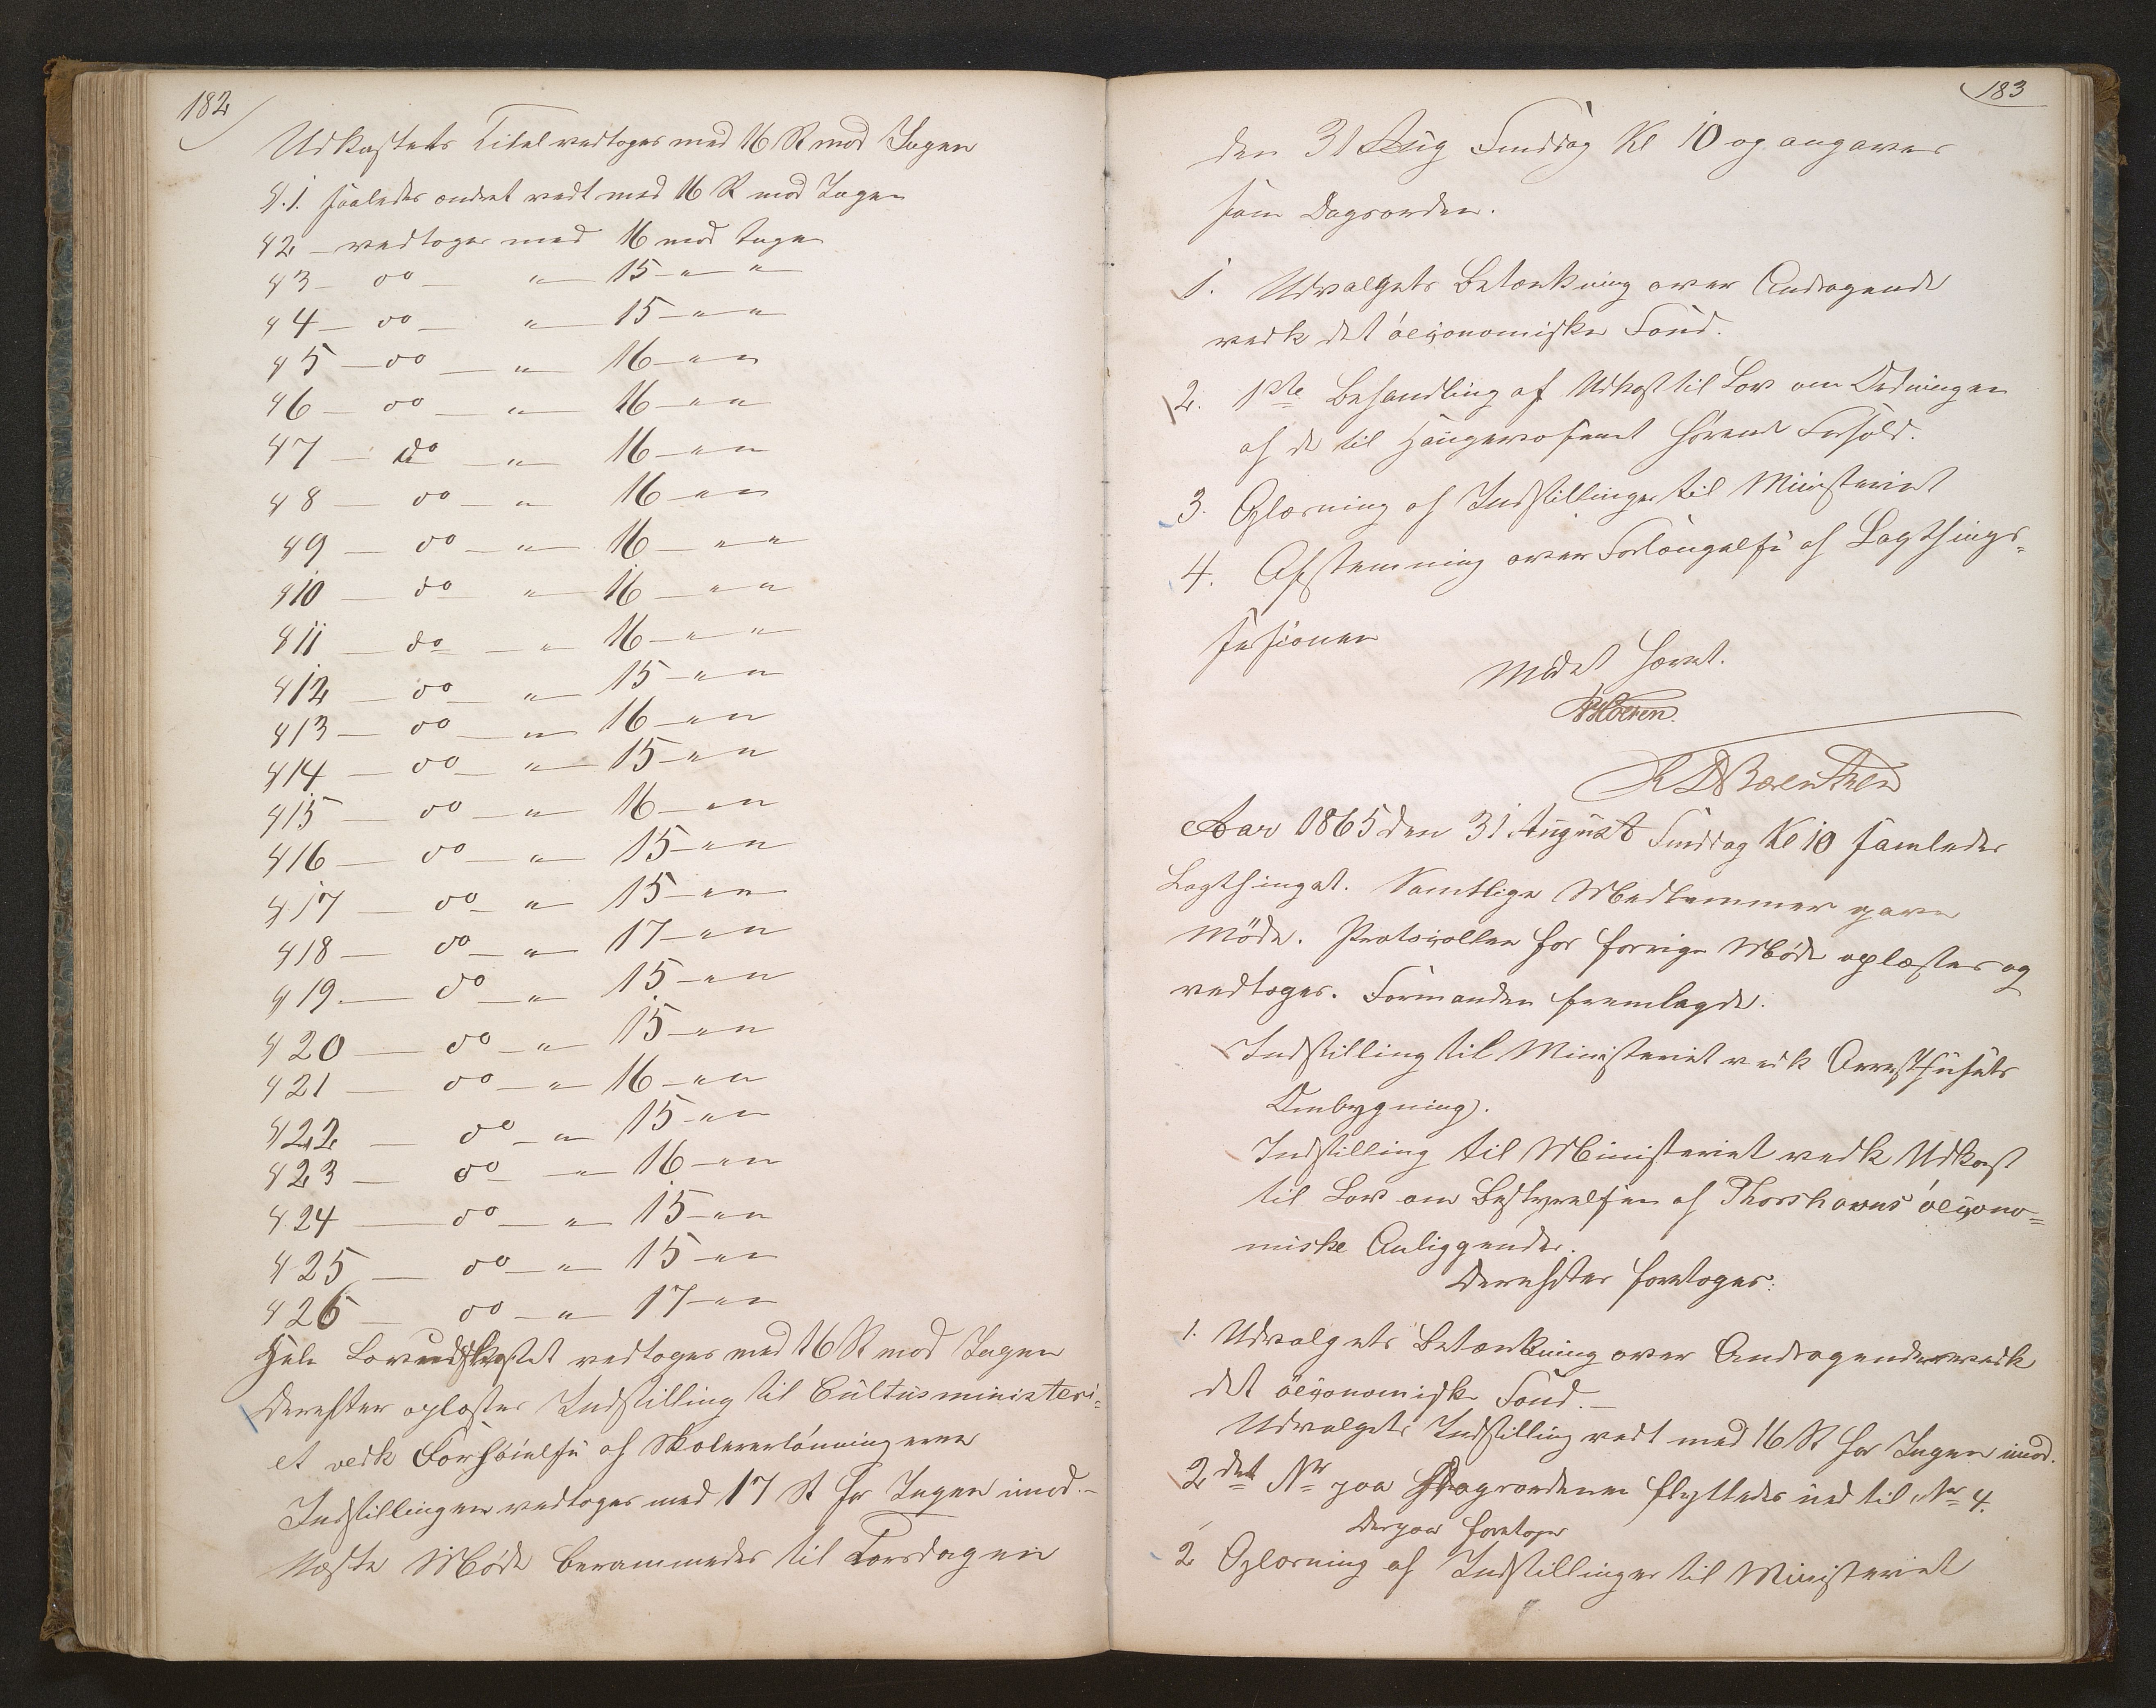 182
Udkastets Titel vedtoges med 16 St mod Ingen
§.1. saaledes ændret vedt med 16 St mod Ingen
§2 – vedtoges med 16 mod Ingen
§3 – do – " – 15 – " – "
§4 – do – " – 15 – " "
§5 – do – " – 16 – " "
§6 – do – " – 16 – " "
§7 – do – " – 16 – " "
§8 – do – " – 16 – " "
§9 – do – " – 16 – " "
§10 – do " – 16 – " "
§11 – do – " – 16 – " "
§12 – do – " – 15 – " "
§13 – do – " – 16 – " "
§14 – do – " – 15 – " "
§15 – do – " – 16 – " "
§16 – do – " – 15 – " "
§17 – do – " – 15 – " "
§18 – do – " – 17 – " "
§19. – do – " – 15 – " "
§20 – do – " – 15 – " "
§21 – do – " – 16 – " "
§22 – do – " – 15 – " "
§23 – do – " – 16 – " "
§24 – do – " – 15 – " "
§25 – do – " – 15 – " "
§26 – do – " – 17 – " "
Hele Lovudkastet vedtoges med 16 St mod Ingen
Derefter oplæstes Indstilling til Cultusministeri-
et vedk Forhöielse af Skolelønningerne
Indstillingen vedtoges med 17 St for Ingen imod. –
Næste Möde berammedes til Torsdagen
183
den 31 Aug Fmddag Kl 10 og angaves
som Dagsorden.
1. Udvalgets Betænkning over Andragende
vedk det öconomiske Fond.
2. 1ste Behandling af Udkast til Lov om Ordningen
af de til Haugevæsenet hörende Forhold.
3. Oplæsning af Indstillinger til Ministeriet
4. Afstemning over Forlængelse af Lagthings-
sessionen
Mödet hævet.
HCMüller
Aar 1865 den 31 August Fmddag Kl 10 samledes
Lagthinget. Samtlige Medlemmer gave
Möde. Protocollen for forrige Möde oplæstes og
vedtoges. Formanden fremlagde:
Indstilling til Ministeriet vedk Arresthusets
Ombygning.
Indstilling til Ministeriet vedk Udkast
til Lov om Bestyrelsen af Thorshavns öcono-
miske Anliggender.
Derefter foretoges:
1. Udvalgets Betænkning over Andragender vedk
det öconomiske Fond. –
Udvalgets Indstilling vedt med 16 St for Ingen imod.
2det Nr paa Dagsordenen flyttedes ned til Nr 4.
Derpaa foretoges
2 Oplæsning af Indstillinger til Ministeriet